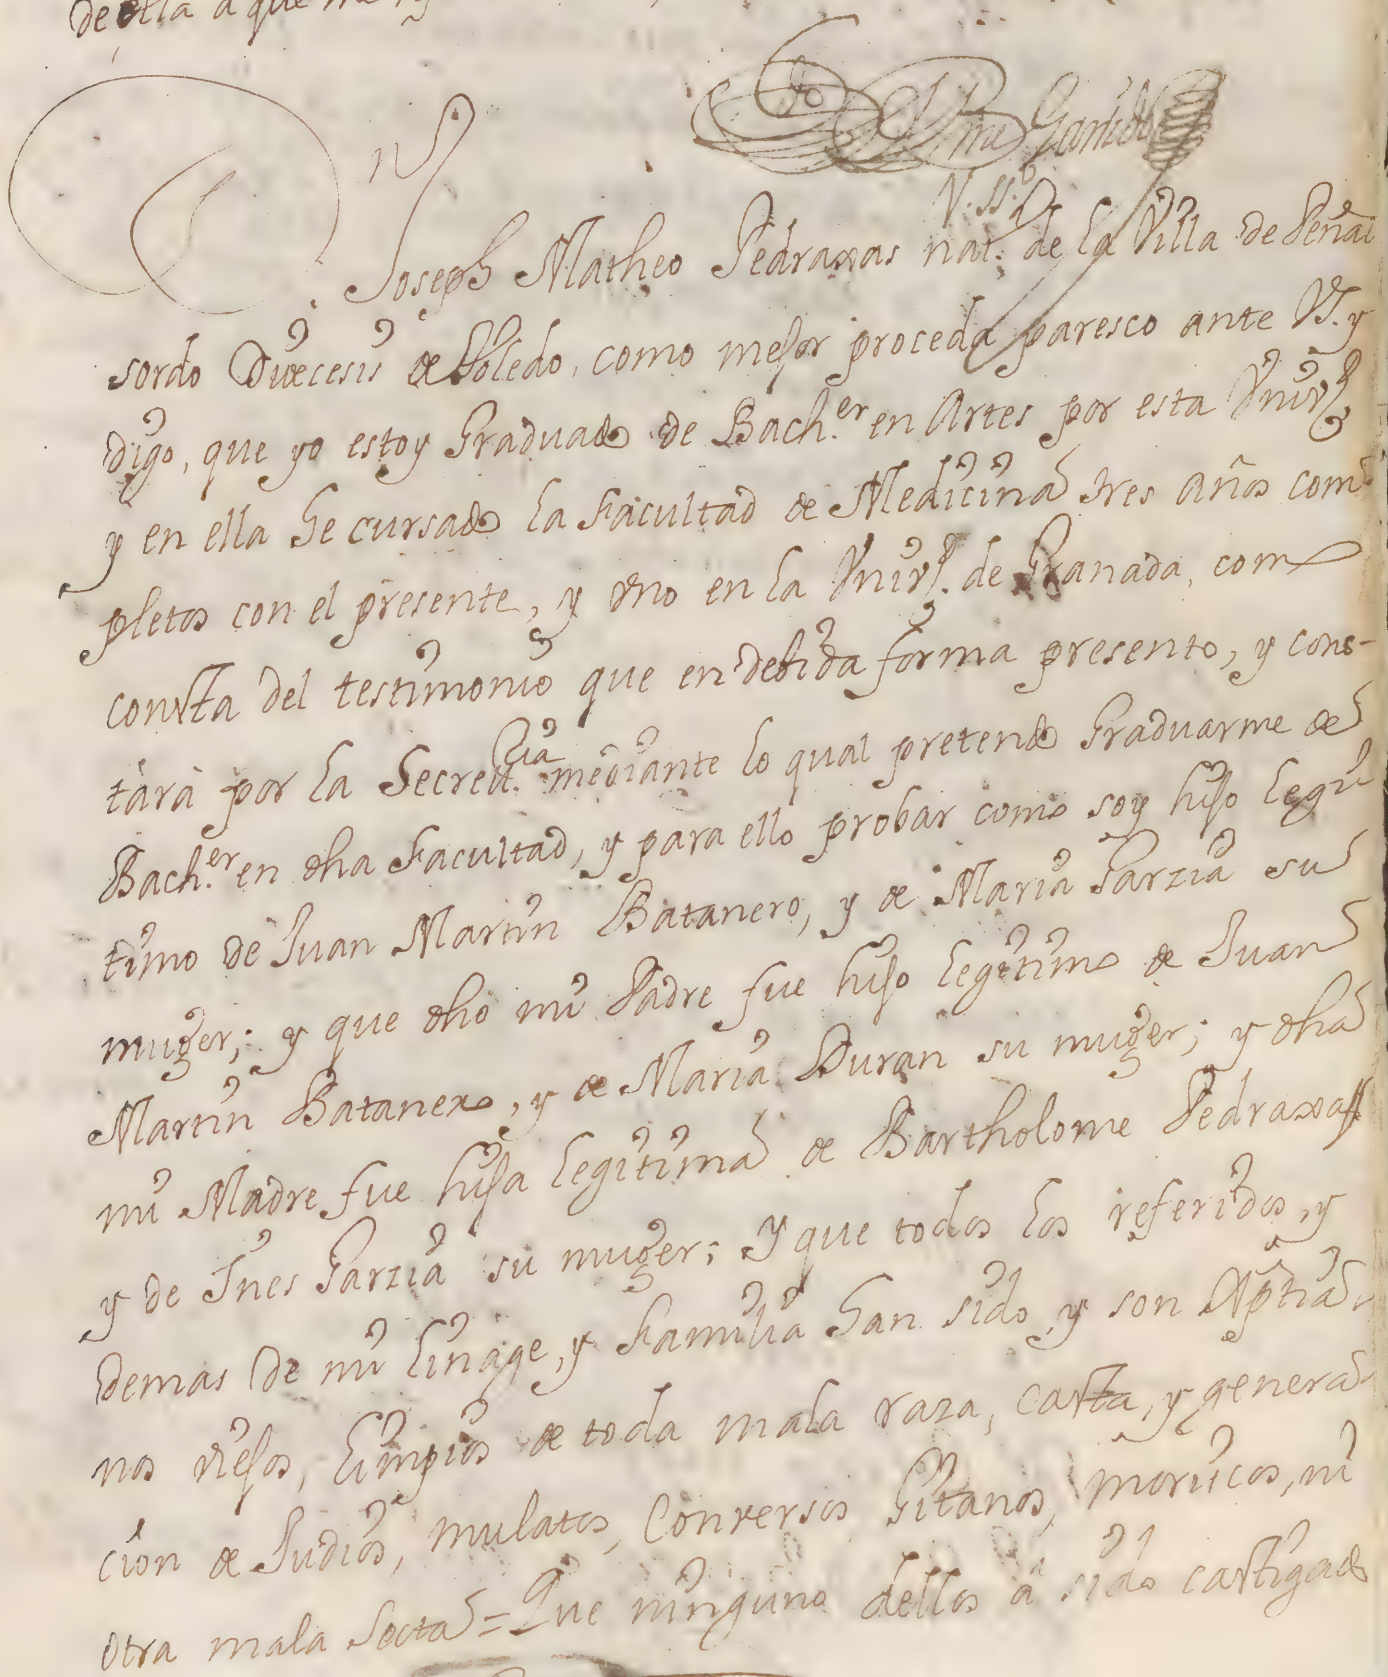 de ella a que
V. SS.ª
Joseph Matheo Pedraxas nat. de la Villa de Peñal
sordo Diœcesis de Toledo, como mejor proceda paresco ante VS. y
digo, que yo estoy Graduado de Bach.er en Artes por esta Vnivd.
y en ella he cursado la Facultad de Medicina tres Años com
pletos con el presente, y vno en la Vnivd. de Granada, como
consta del testimonio que en debida forma presento, y cons-
tàrà por la Secretria. mediante lo qual pretendo Graduarme de
Bach.er en dha Facultad, y para ello probar como soy hijo legi
timo de Juan Martin Batanero, y de Maria Garzia su
muger; y que dho mi Padre fue hijo legitimo de Juan
Martin Batanero, y de Maria Duran su muger; y dha
mi Madre fue hija legitima de Bartholome Pedraxas
y de Ines Garzia su muger; y que todos los referidos, y
demas de mi linage, y Familia han sido, y son Xptia
nos viejos, limpios de toda mala raza, casta, y genera
cion de Judios, mulatos, Conversos Gitanos, moriscos, ni
otra mala Secta = Que ninguno dellos a sido castigado